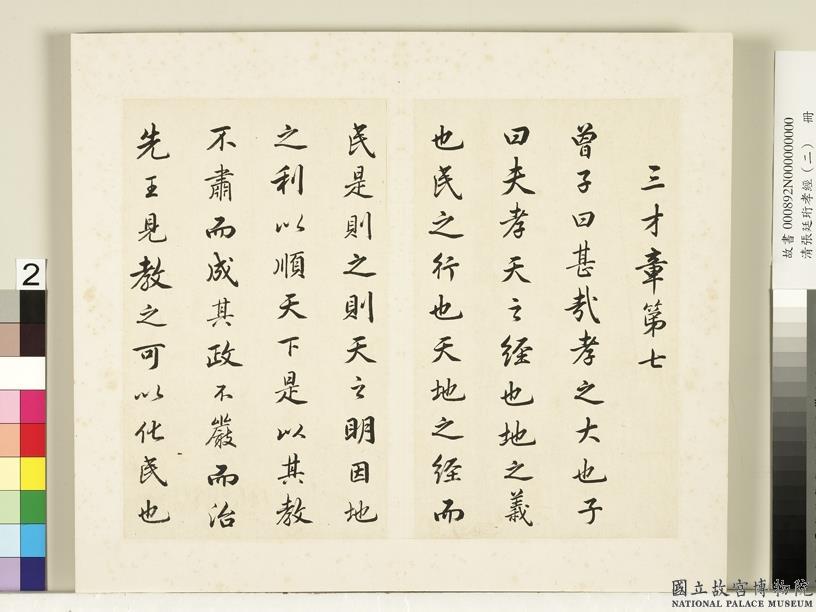 三才章第七
曾子曰甚哉孝之大也子
曰夫孝天之經也地之義
也民之行也天地之經而
民是則之則天之明因地
之利以順天下是以其教
不肅而成其政不嚴而治
先王見教之可以化民也
2
故書000892N000000000 冊
清張廷珩孝經(二)
國立故宮博物院
NATIONAL PALACE MUSEUM